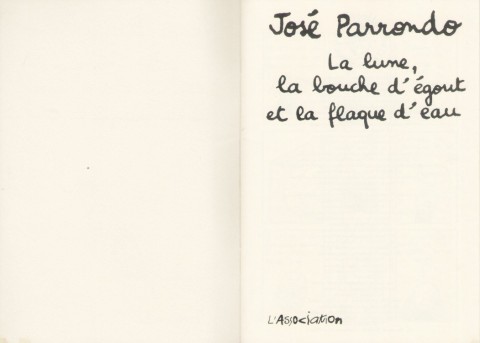 José Parrondo
La lune,
la bouche d'égout
et la flaque d'eau
L'Association